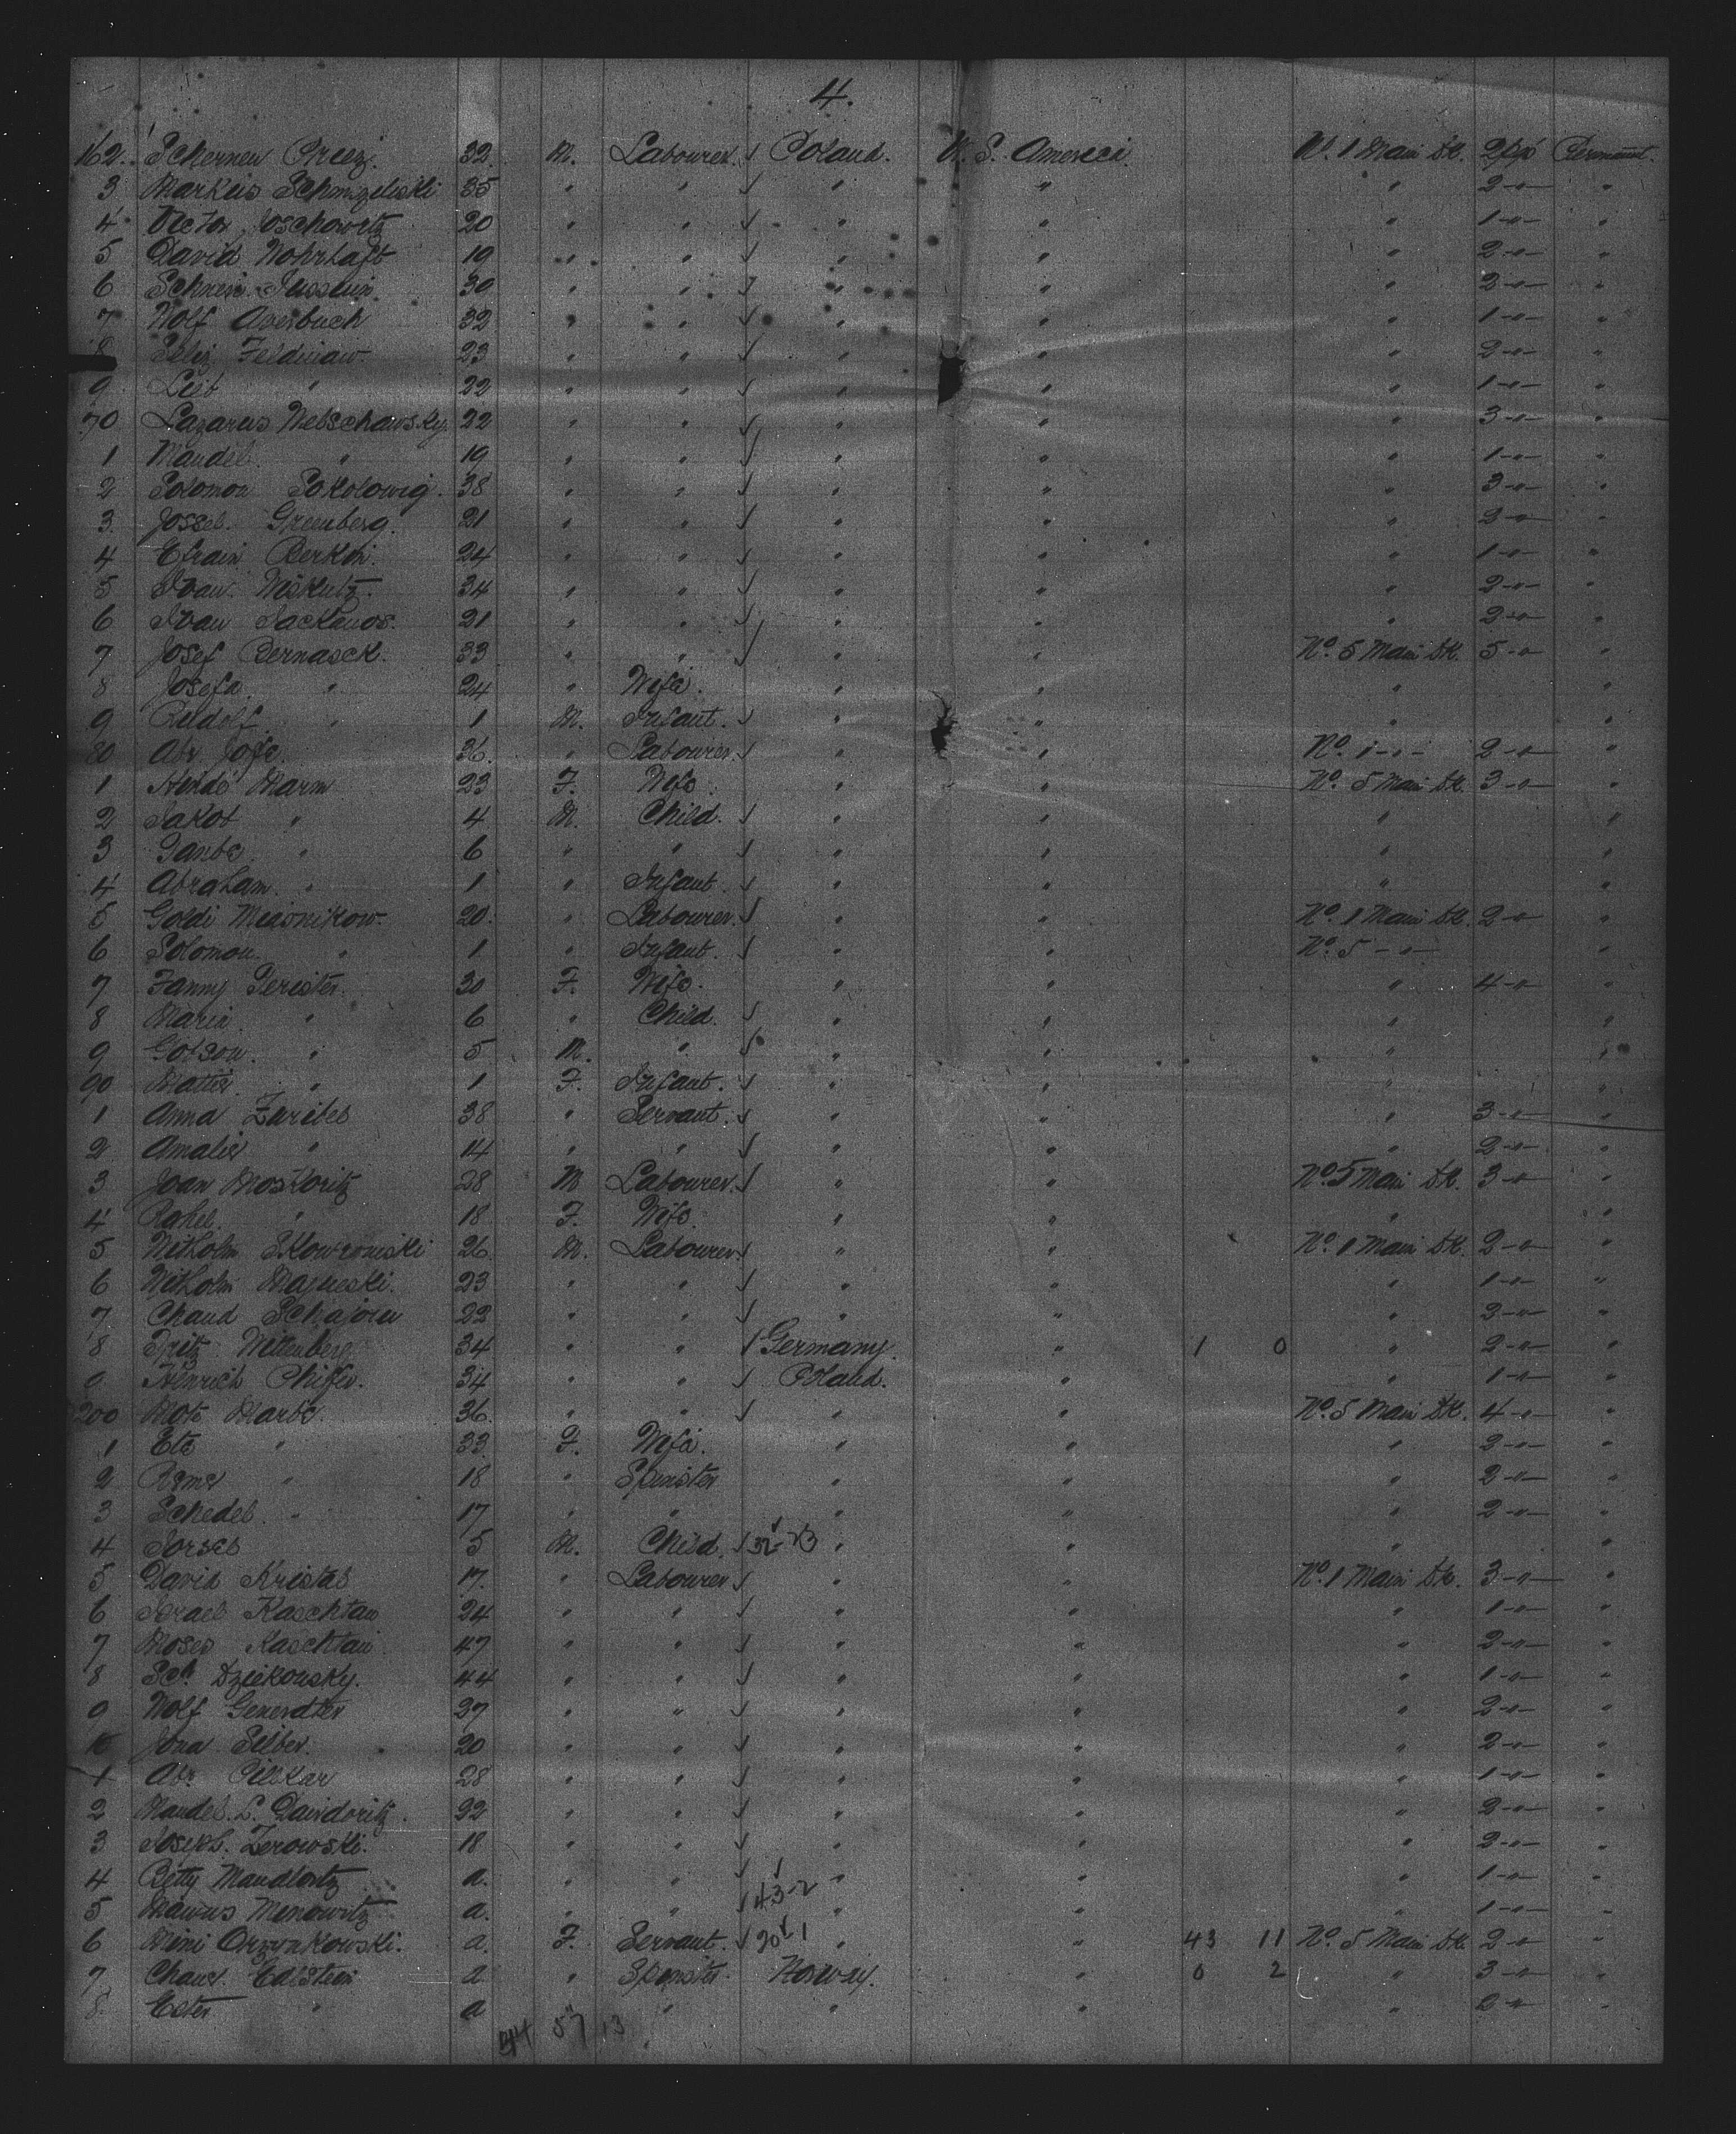 4.
162. Schernen Preez. 32. M. Labourer. Poland. U. S. America No. 1 Main Dk. 2 pgs Permannt.
3 Markus Schmizeliski 35 " " " " " 2-"- "
4 Victor Joschowitz 20 " " " " " 1-"- "
5 David Wohrhaft 19 " " " " " 2-"- "
6 Schnein 30 " " " " " 2-"- "
7 Wolf Averbuch 32 " " " " " 1-"- "
8 Selig Feldman 23 " " " " " 2-"- "
9 Leib " 22 " " " " " 1-"- "
70 Lazarus Webschawsky. 22 " " " " " 3-"- "
1 Mandel. " 19 " " " " " 1-"- "
2 Solomon Sokolowig. 38 " " " " " 3-"- "
3 Jossel. Greenberg. 21 " " " " " 2-"- "
4 Efraim Berkin. 24 " " " " " 1-"- "
5 Ivan. Niskutz. 34 " " " " " 2-"- "
6 Ivan Sackanos. 21 " " " " " 2-"- "
7 Josef Bernasek. 33 " " " " No. 5 Main Dk. 5-"- "
8 Josefa. " 24 " Wife. " " " "
9 Rudolf " 1 M. Infant. " " " "
80 Abr Jofe. 36. " Labourer. " " No. 1-"- 2-"- "
1 Hende Marm 23 F. Wife. " " No. 5 Main Dk. 3-"- "
2 Jakob " 4 M. Child. " " " "
3 Taube. " 6 " " " " " "
4 Abraham. " 1 " Infant. " " " "
5 Goldi Meisnikow. 20. " Labourer. " " No. 1 Main Dk. 2-"- "
6 Solomon. " 1 " Infant. " " No. 5-"- "
7 Fanny Perister. 30 F. Wife. " " " 4-"- "
8 Maria. " 6 " Child. " " " "
9 Gotsow. " 5 M. " " " " "
90 Mattie. " 1 F. Infant. " " " "
1 Anna Zaribel 38 " Servant. " " " 3-"- "
2 Amalie " 14 " " " " " 2-"- "
3 Joan Moskoritz 28 M Labourer. " " No. 5 Main Dk. 3-"- "
4 Rahel. " 18 F. Wife. " " " "
5 Wilholm Skowroniski 26 M. Labourer. " " No. 1 Main Dk. 2-"- "
6 Wilholm Majueski. 23 " " " " " 1-"- "
7 Chaud Schajorew 22 " " " " " 2-"- "
8 Fritz Wittenberg. 34 " " Germany. " 1 0 " 2-"- "
9 Heinrich Chifer. 34 " " Poland. " " 1-"- "
200 Mote Marbe. 36. " " " " No. 5 Main Dk. 4-"- "
1 Ete " 33 F. Wife. " " " 2-"- "
2 " 18 " Spinster " " " 2-"- "
3 Schedel. " 17 " " " " " 2-"- "
4 Jorsel 5 M. Child. 32-23 " " " "
5 David Kristal 17. " Labourer. " " No. 1 Main Dk. 3-"- "
6 Israel Kaschtan 24 " " " " " 1-"- "
7 Moses Kaschtan 47 " " " " " 2-"- "
8 Sch. Dziekowsky. 44 " " " " " 1-"- "
9 Wolf Generdter 27 " " " " " 2-"- "
10 Jona Silber. 20 " " " " " 2-"- "
1 Abr. Pilskar 28 " " " " " 1-"- "
2 Mandel. L. Davidoritz. 22 " " " " " 2-"- "
3 Joseph. Zerowski. 18 " " " " " 2-"- "
4 Betty Mandloitz a. " " " " " 1-"- "
5 Marcus Menowitz a. " " 43-2 " " 1-"- "
6 Mini Orzynkowski. a. F. Servant. 20 1 " " 43 11 No. 5 Main Dk. 2-"- "
7 Chane. Edlstein a " Spinster. Norway. " 0 2 " 3-"- "
8. Ester " a " " " " " 2-"- "
44 57 13